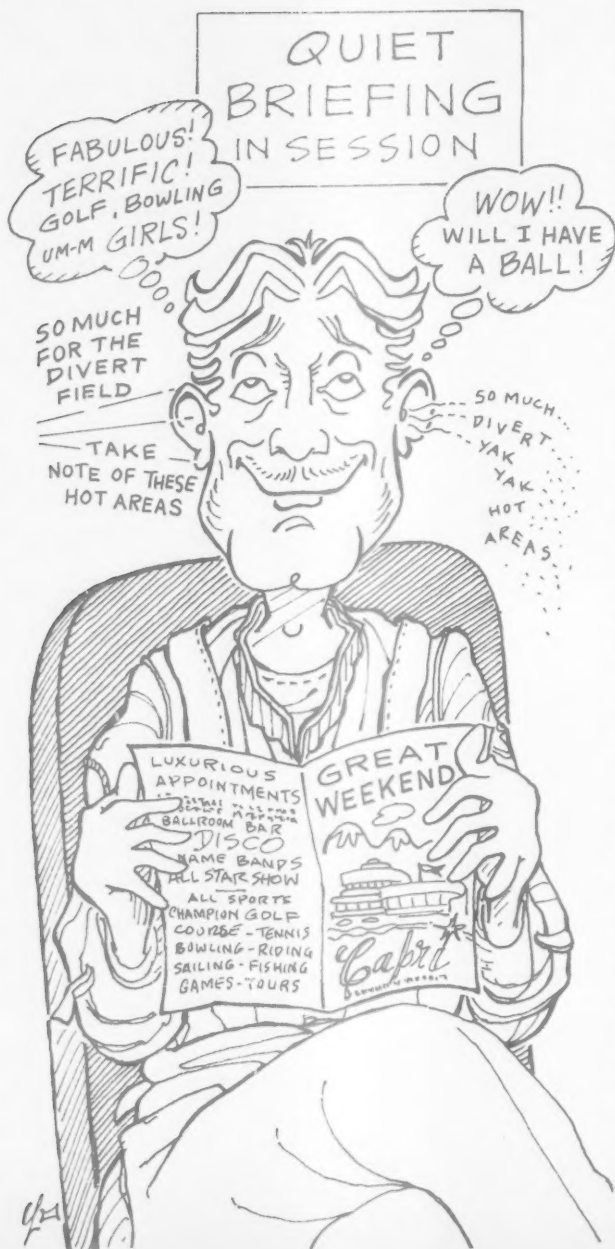 QUIET
BRIEFING
IN SESSION
FABULOUS!
TERRIFIC!
GOLF, BOWLING
UM-M GIRLS!
WOW!!
WILL I HAVE
A BALL!
SO MUCH
FOR THE
DIVERT
FIELD
TAKE
NOTE OF THESE
HOT AREAS
SO MUCH...
DIVERT
YAK
YAK
HOT
AREAS
LUXURIOUS
APPOINTMENTS
BALLROOM BAR
DISCO
NAME BANDS
ALL STAR SHOW
ALL SPORTS
CHAMPION GOLF
COURSE - TENNIS
BOWLING - RIDING
SAILING - FISHING
GAMES - TOURS
GREAT
WEEKEND
Capri